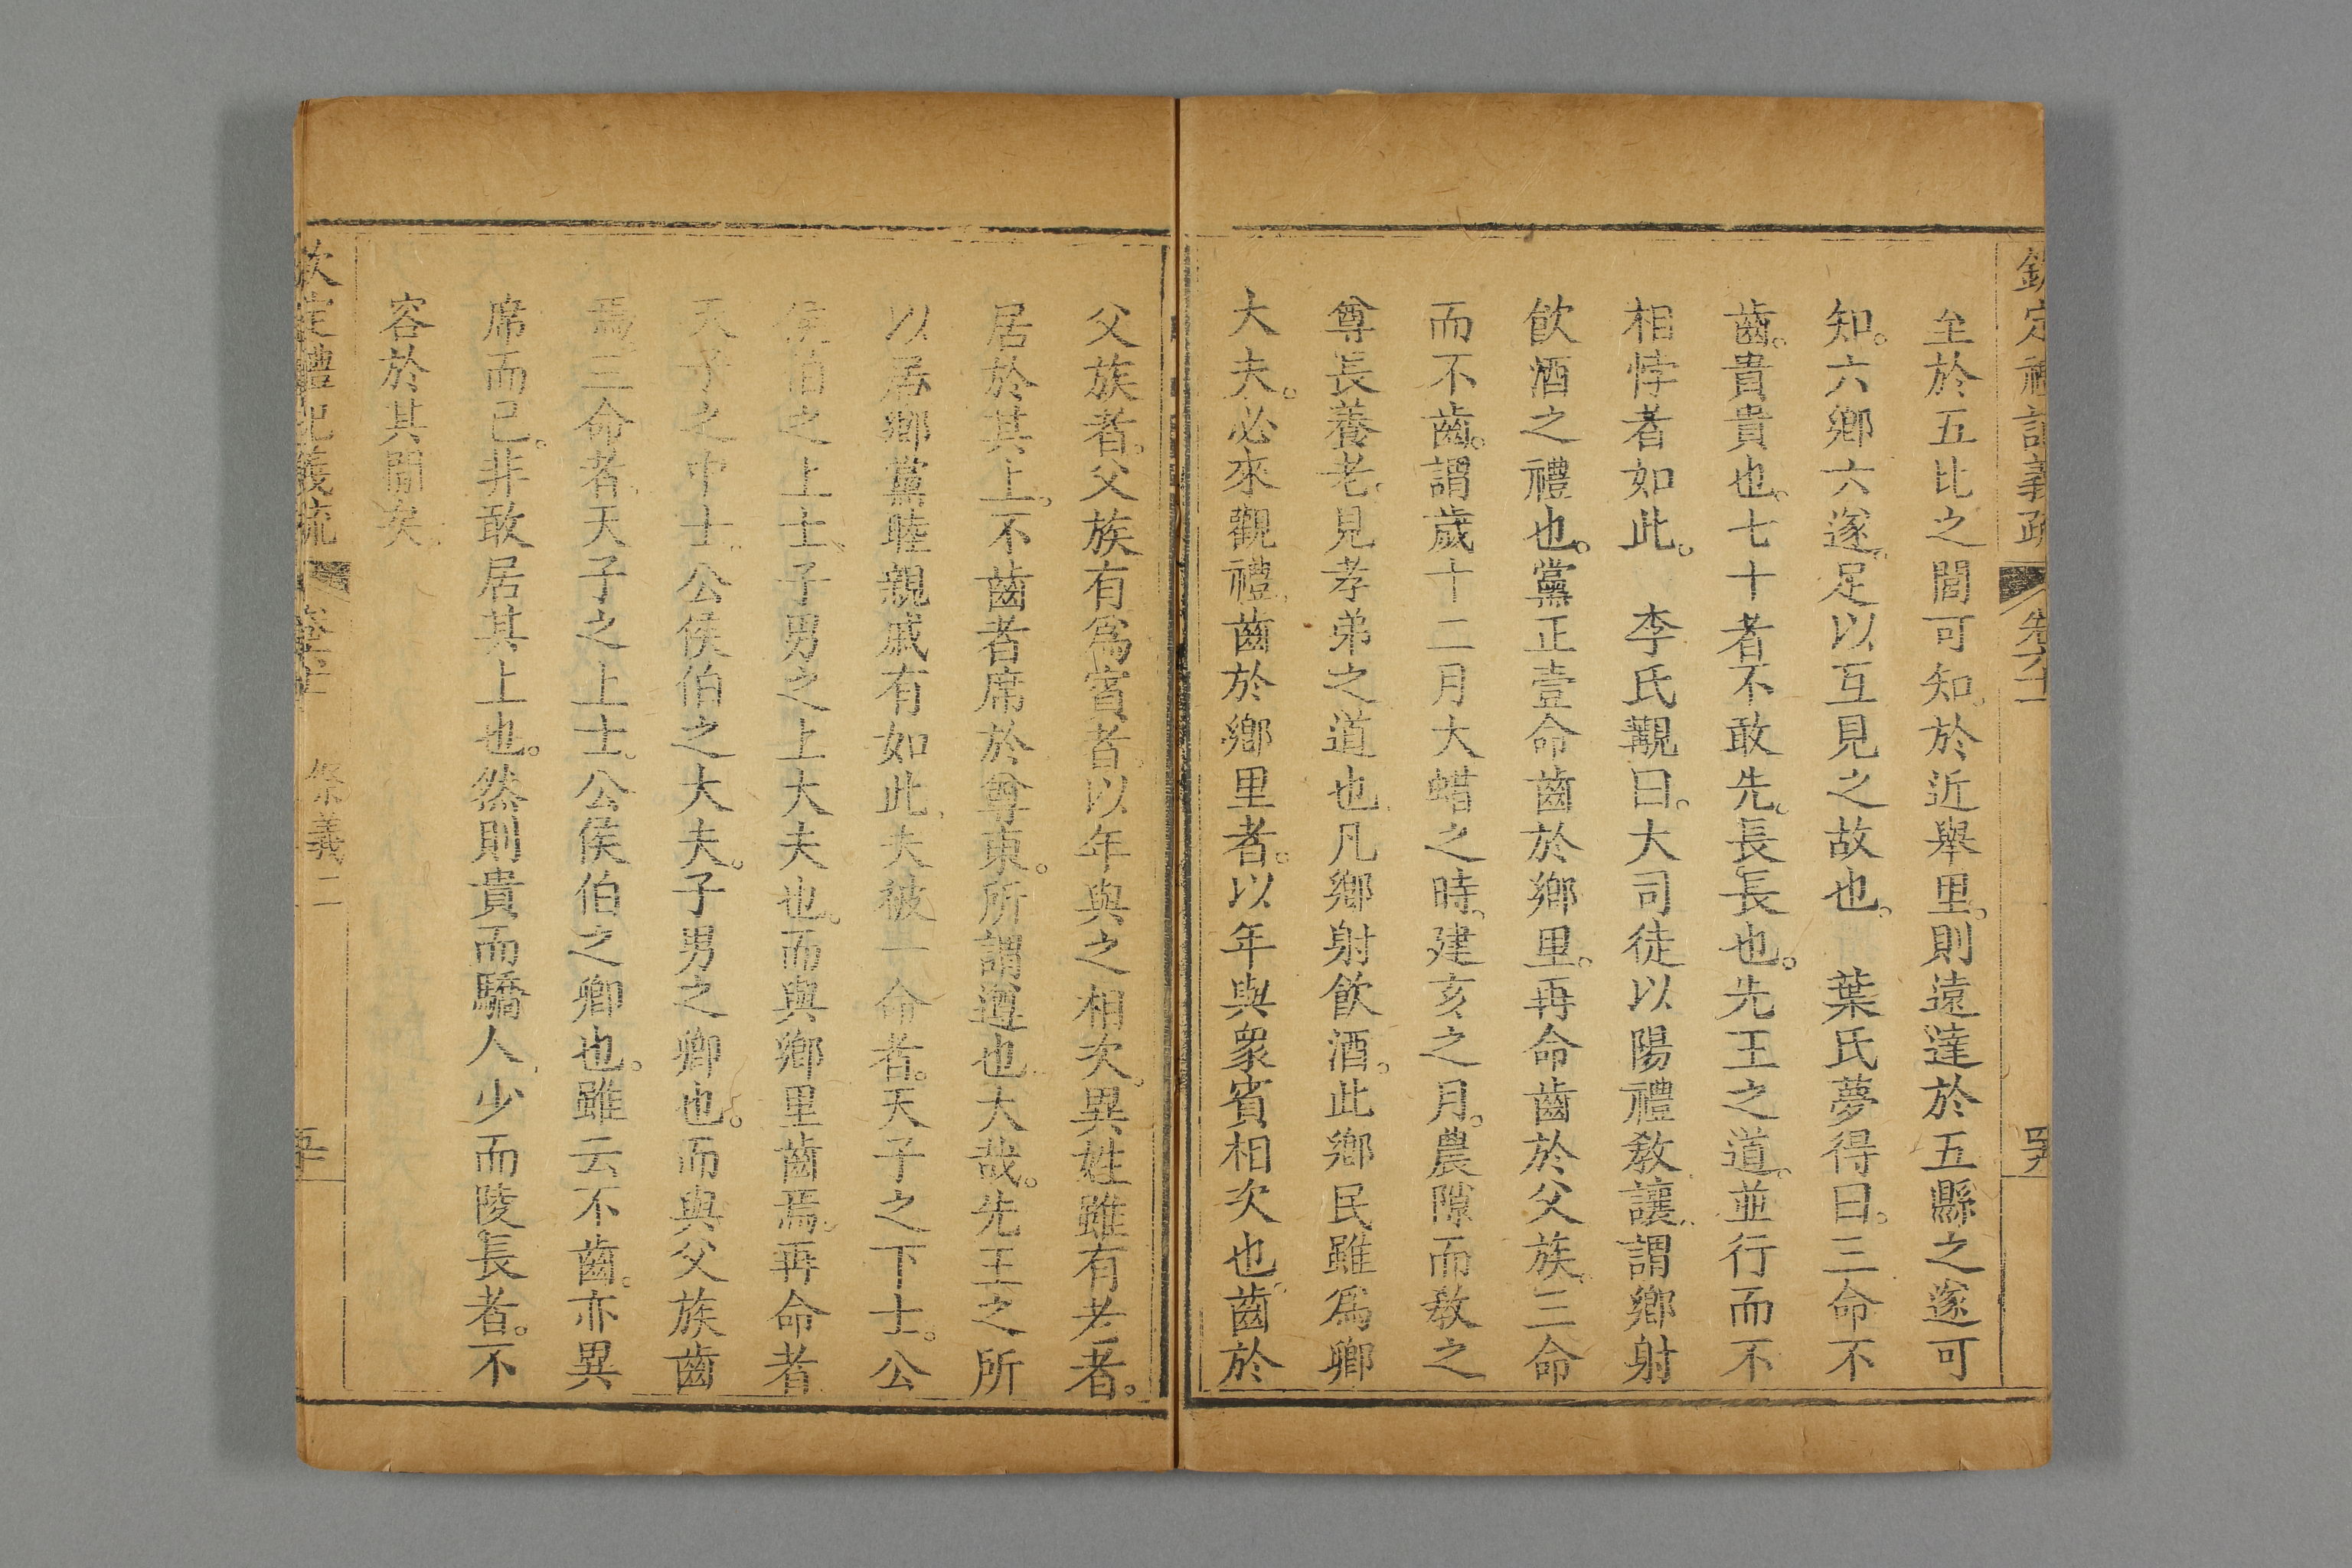 欽定禮記義疏 卷六十一
至於五比之閭可知。於近舉里。則遠達於五縣之遂可
知。六鄉六遂。足以互見之故也。 葉氏夢得曰。三命不
齒。貴貴也。七十者不敢先。長長也。先王之道。並行而不
相悖者如此。 李氏覯曰。大司徒以陽禮教讓。謂鄉射
飲酒之禮也。黨正壹命齒於鄉里。再命齒於父族。三命
而不齒。謂歲十二月大蜡之時。建亥之月。農隙而教之
尊長養老。見孝弟之道也。凡鄉射飲酒。此鄉民雖爲卿
大夫。必來觀禮。齒於鄉里者。以年與衆賓相次也。齒於
父族者。父族有爲賓者。以年與之相次。異姓雖有老者。
居於其上。不齒者席於尊東。所謂遵也。大哉。先王之所
以居鄉黨睦親戚有如此。夫彼一命者。天子之下士。公
侯伯之上士。子男之上大夫也。而與鄉里齒焉。再命者
天子之中士。公侯伯之大夫。子男之卿也。而與父族齒
焉。三命者。天子之上士。公侯伯之卿也。雖云不齒。亦異
席而已。非敢居其上也。然則貴而驕人。少而陵長者。不
容於其間矣。
欽定禮記義疏 祭義二